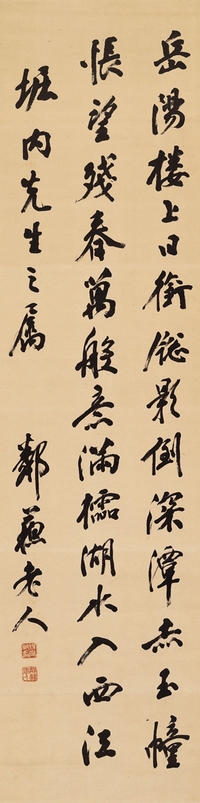 岳陽楼上日銜窗影倒深潭赤玉幢
悵望殘春萬般意滿櫺湖水入西江
堀内先生之属 鄰蘇老人